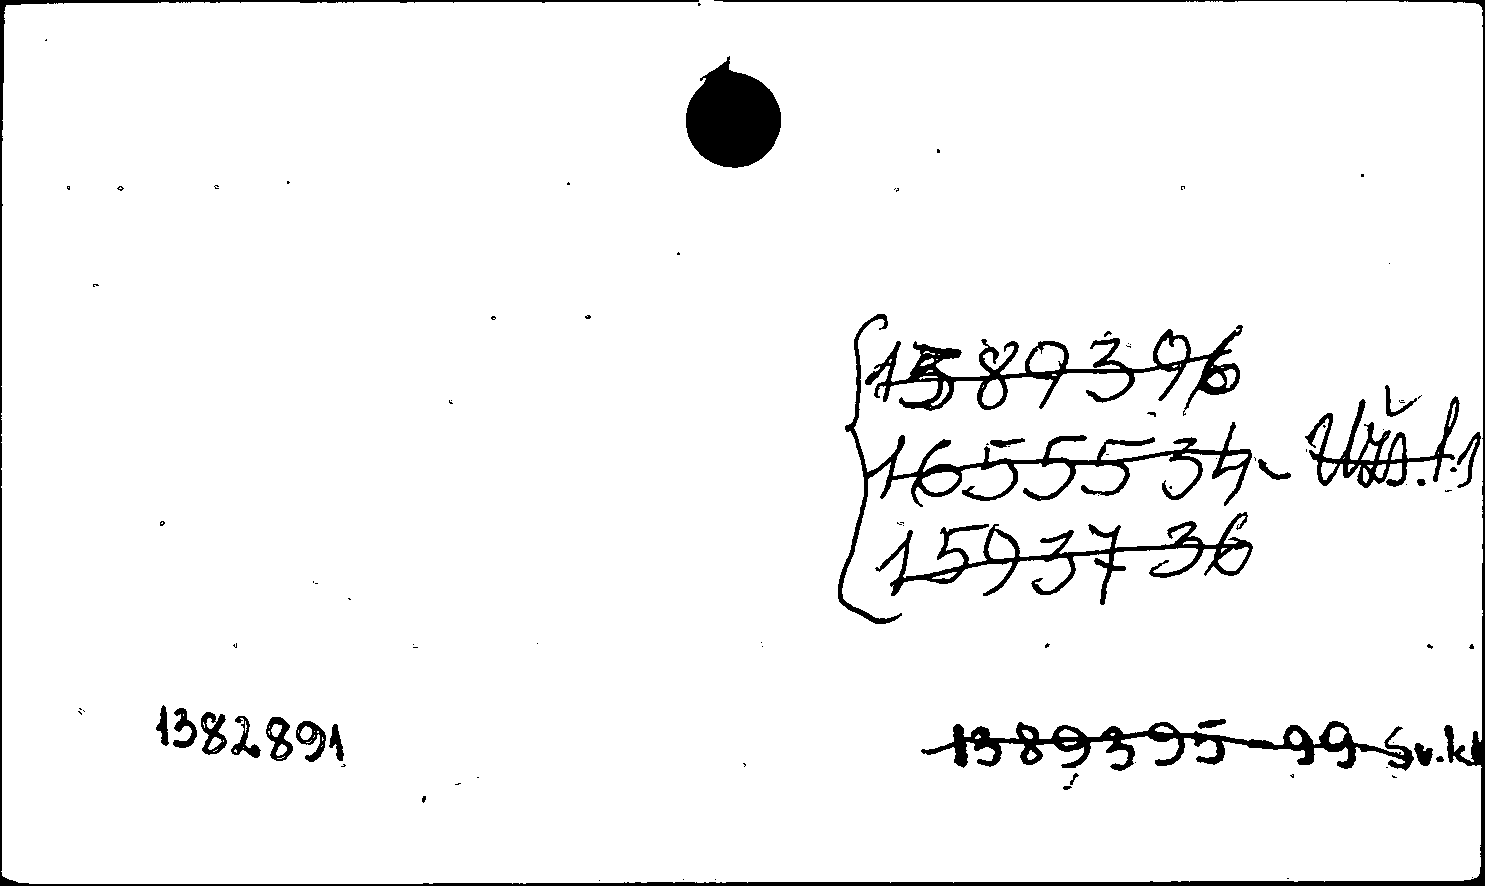 1589396
1655534 -
1593736
1382891
1389395-99 Sv.kl